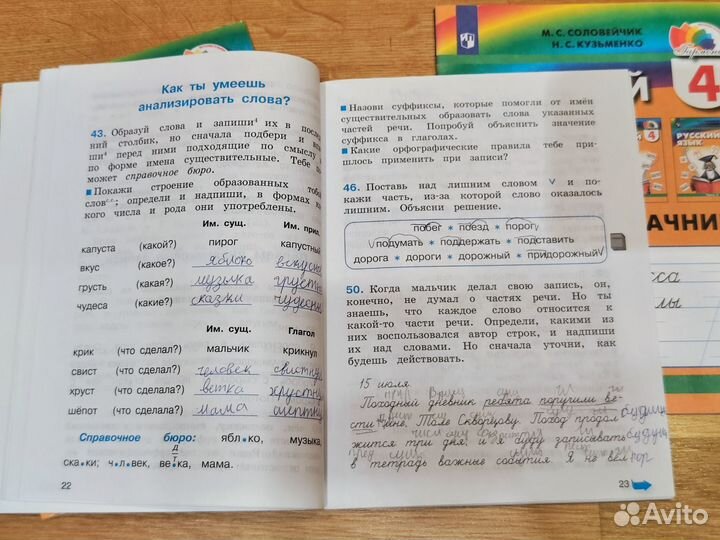 Как ты умеешь
анализировать слова?
43. Образуй слова и запиши⁴ их в послед
ний столбик, но сначала подбери и впи
ши⁴ перед ними подходящие по смыслу и
по форме имена существительные. Тебе по
может справочное бюро.
Покажи строение образованных тобой
слов; определи и надпиши, в формах ка
кого числа и рода они употреблены.
Им. сущ. Им. прил.
капуста (какой?) пирог капустный
вкус (какое?) яблоко вкусно
грусть (какая?) музыка грустн
чудеса (какие?) сказки чудесн
Им. сущ. Глагол
крик (что сделал?) мальчик крикнул
свист (что сделал?) человек свистну
хруст (что сделала?) ветка хрустн
шёпот (что сделала?) мама шепн
Справочное бюро: ябл•ко, музыка,
д
т
ска•ки; ч•л•век, ве•ка, мама.
22
Назови суффиксы, которые помогли от имён
существительных образовать слова указанных
частей речи. Попробуй объяснить значение
суффикса в глаголах.
Какие орфографические правила тебе при-
шлось применить при записи?
46. Поставь над лишним словом V и по-
кажи часть, из-за которой слово оказалось
лишним. Объясни решение.
побег • поезд • порог
подумать • поддержать • подставить
дорога • дороги • дорожный • придорожный
50. Когда мальчик делал свою запись, он,
конечно, не думал о частях речи. Но ты
знаешь, что каждое слово относится к
какой-то части речи. Определи, какими из
них воспользовался автор строк, и надпиши
их над словами. Но сначала уточни, как
будешь действовать.
15 июля.
Погодный дневник ребята поручили ве-
сти мне, Толе Скворцову. Поход продол
жится три дня. и я буду записывать
в тетрадь важные события. Я не вел
23
М. С. СОЛОВЕЙЧИК
Н. С. КУЗЬМЕНКО
Гармония
4
РУССКИЙ
ЯЗЫК
Avito